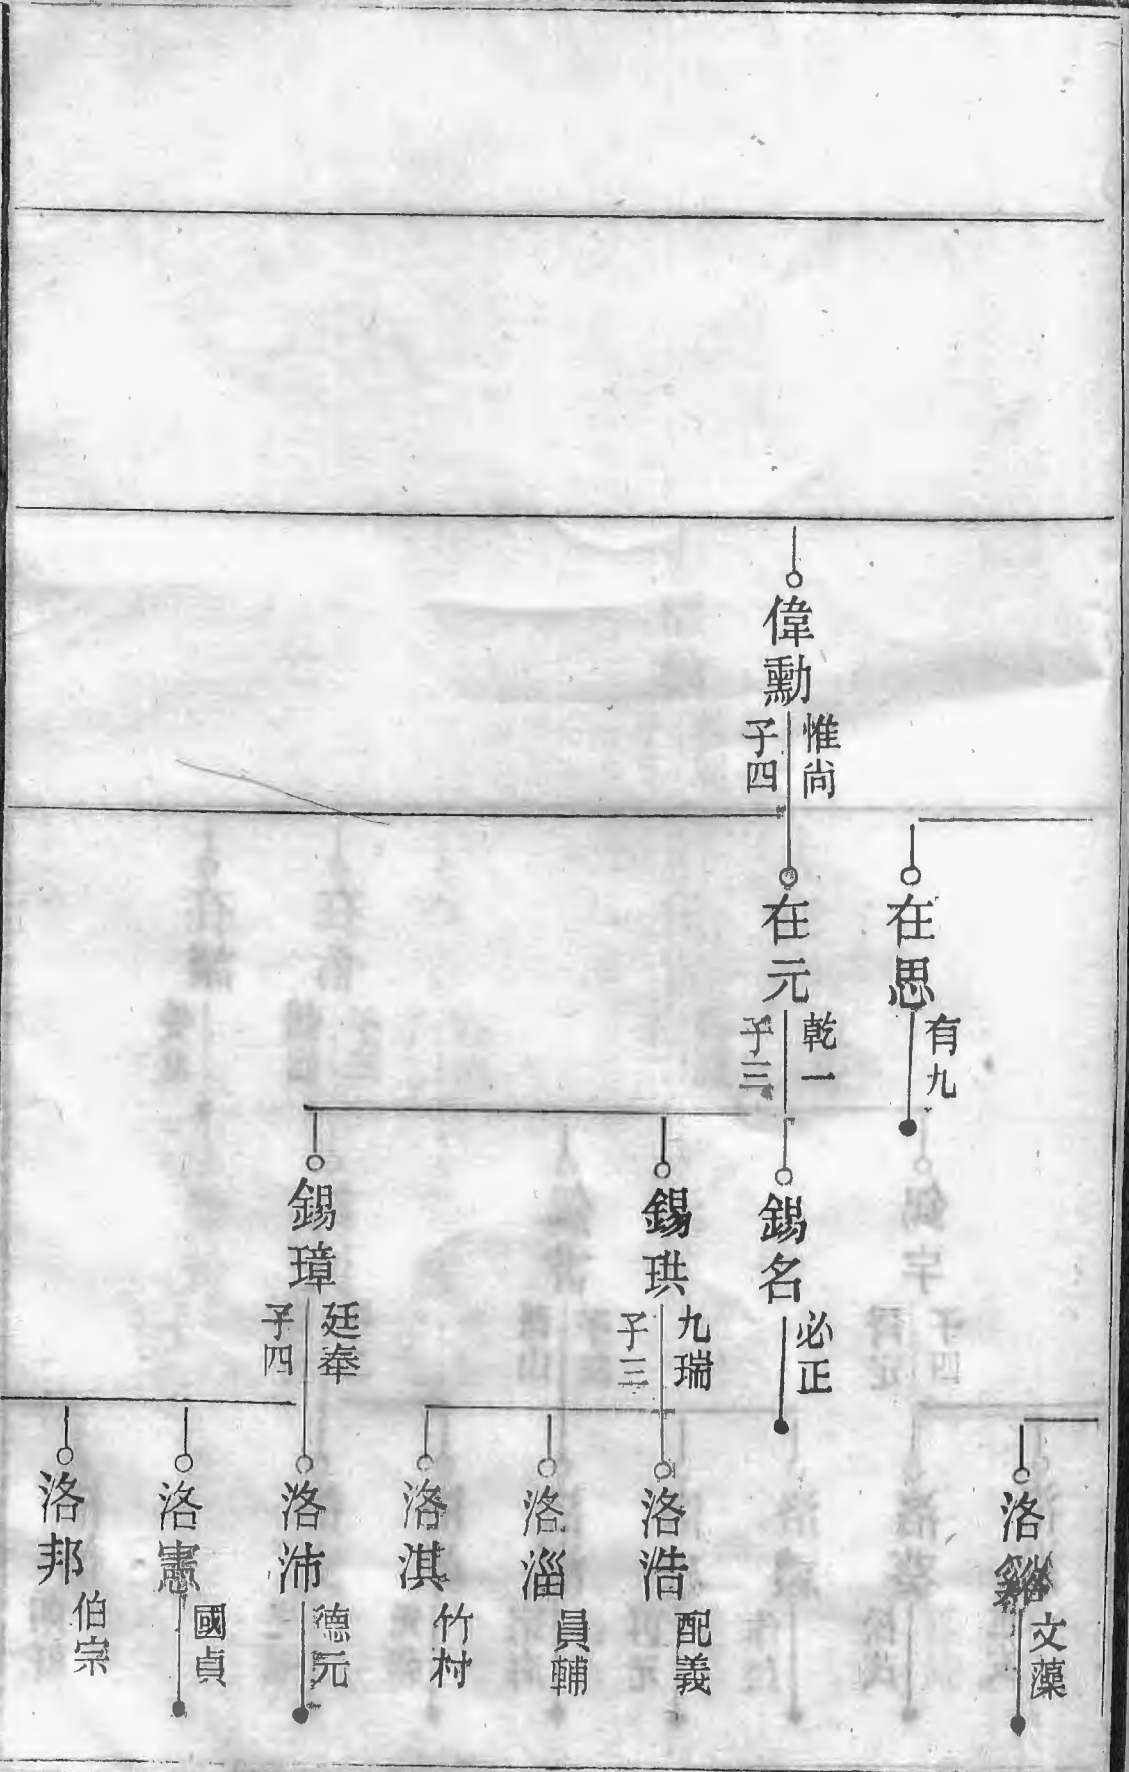 偉勳
惟尚
子四
在思
有九
在元
乾一
子三
錫名
必正
錫珙
九瑞
子三
錫璋
廷奉
子四
洛
文藻
洛浩
配義
洛淄
員輔
洛淇
竹村
洛沛
德元
洛憲
國貞
洛邦
伯宗